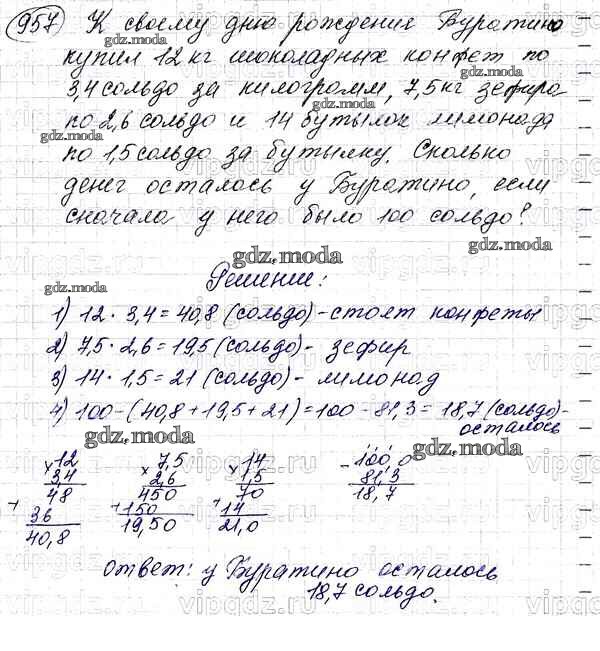 957 К своему дню рождения Буратино
gdz.moda
купил 12 кг шоколадных конфет по
gdz.moda gdz.moda
3,4 сольдо за килограмм, 7,5 кг зефира
gdz.moda
по 2,6 сольдо и 14 бутылок лимонада
gdz.moda
по 1,5 сольдо за бутылку. Сколько
денег осталось у Буратино, если
сначала у него было 100 сольдо?
gdz.moda gdz.moda
Решение:
gdz.moda
1) 12 · 3,4 = 40,8 (сольдо) - стоят конфеты
2) 7,5 · 2,6 = 19,5 (сольдо) - зефир
3) 14 · 1,5 = 21 (сольдо) - лимонад
4) 100 - (40,8 + 19,5 + 21) = 100 - 81,3 = 18,7 (сольдо) -
осталось
gdz.moda gdz.moda
× 12 × 7,5 × 14 - 100,0
3,4 2,6 1,5 81,3
48 450 70 18,7
+ 36 + 150 + 14
40,8 19,50 21,0
Ответ: у Буратино осталось
18,7 сольдо.
vipgdz.ru